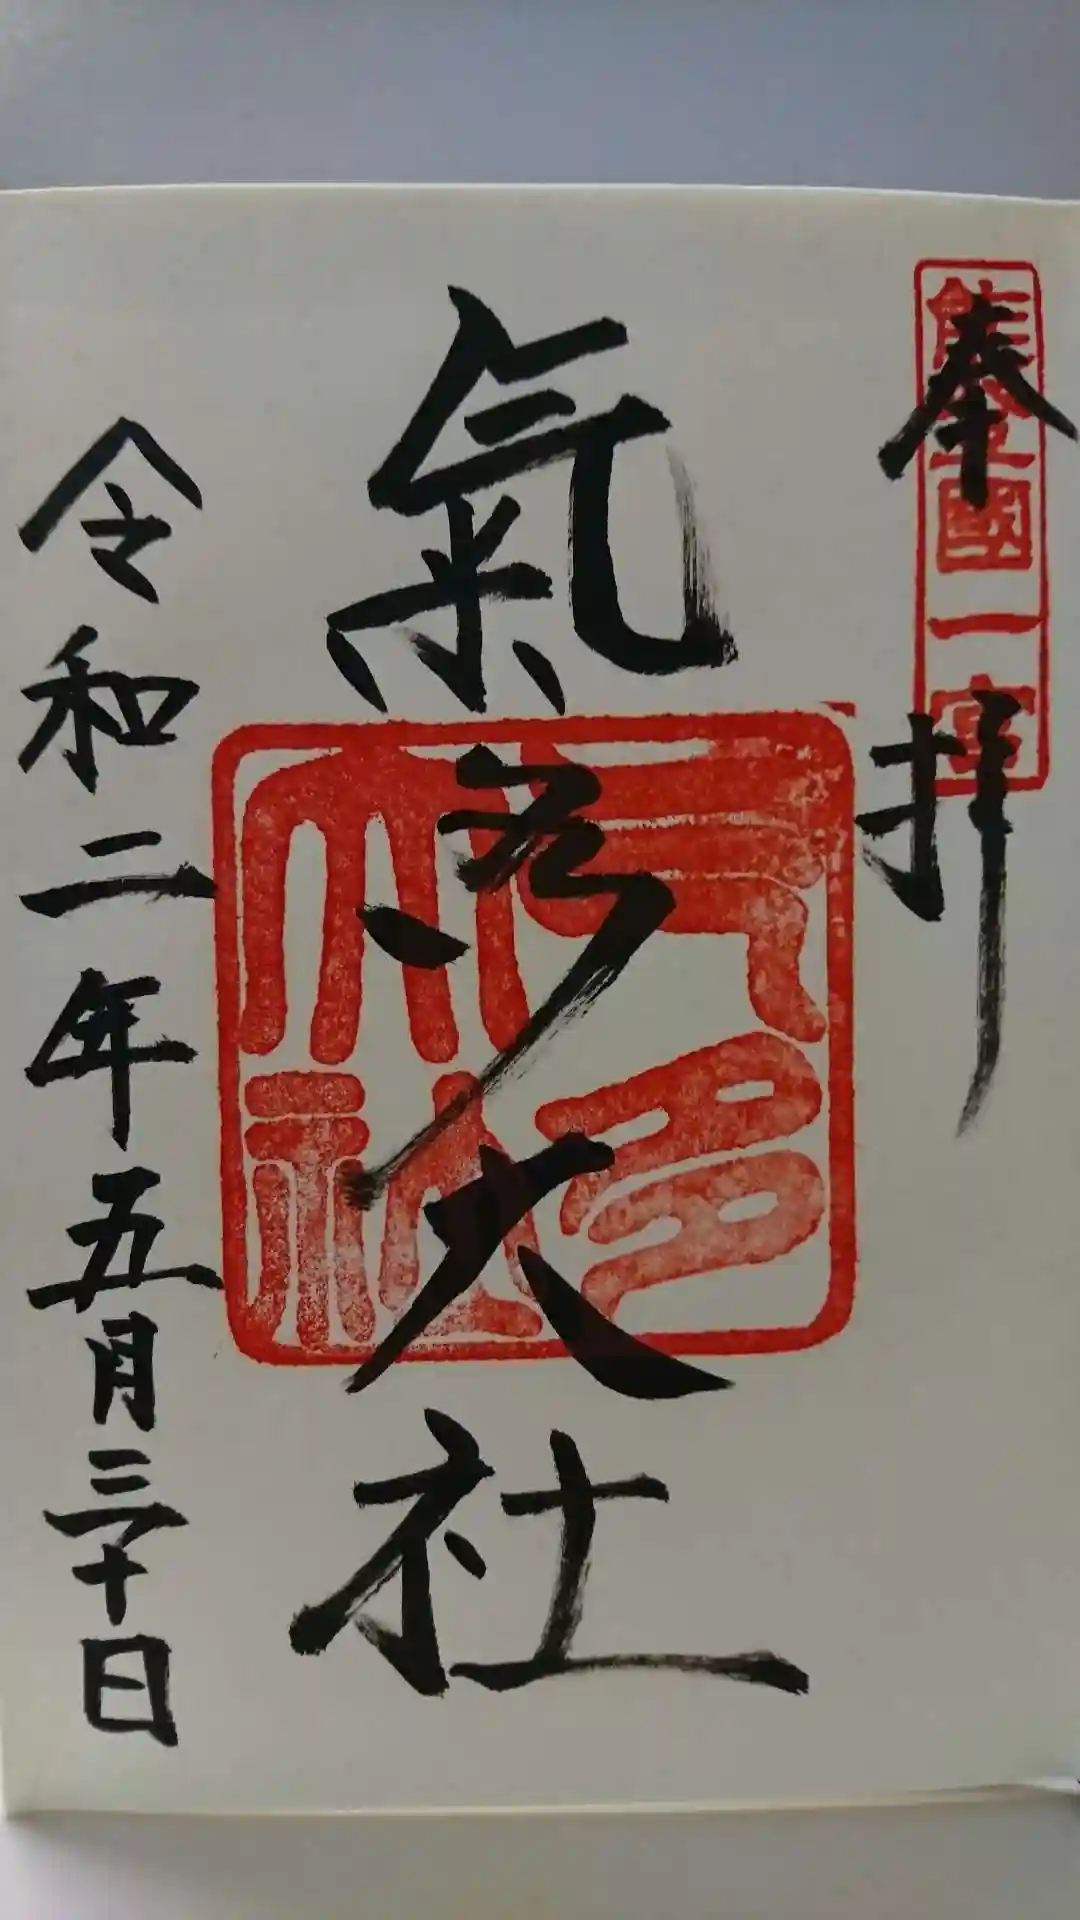 奉拝
能登國一宮
氣多大社
气多大社
令和二年五月三十日